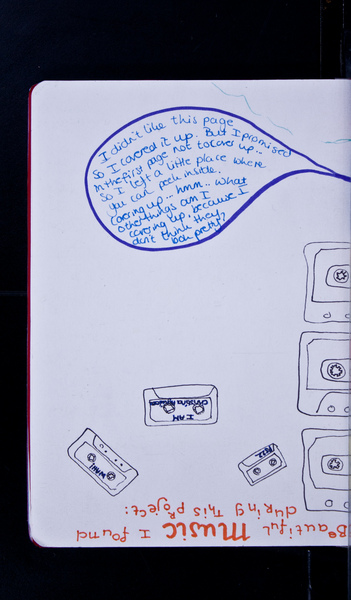 I didn't like this page
so I covered it up. But I promised
in the first page not to cover up...
so I left a little place where
you can peek inside.
Covering up... hmm... what
other things am I
covering up, because I
don't think they
look pretty?
I AM
Beautiful MUSIC I found
during this project: